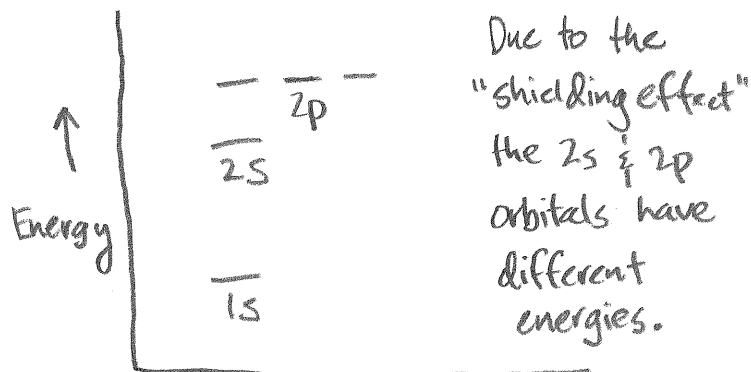 Energy
2p
2s
1s
Due to the
"shielding effect"
the 2s & 2p
orbitals have
different
energies.